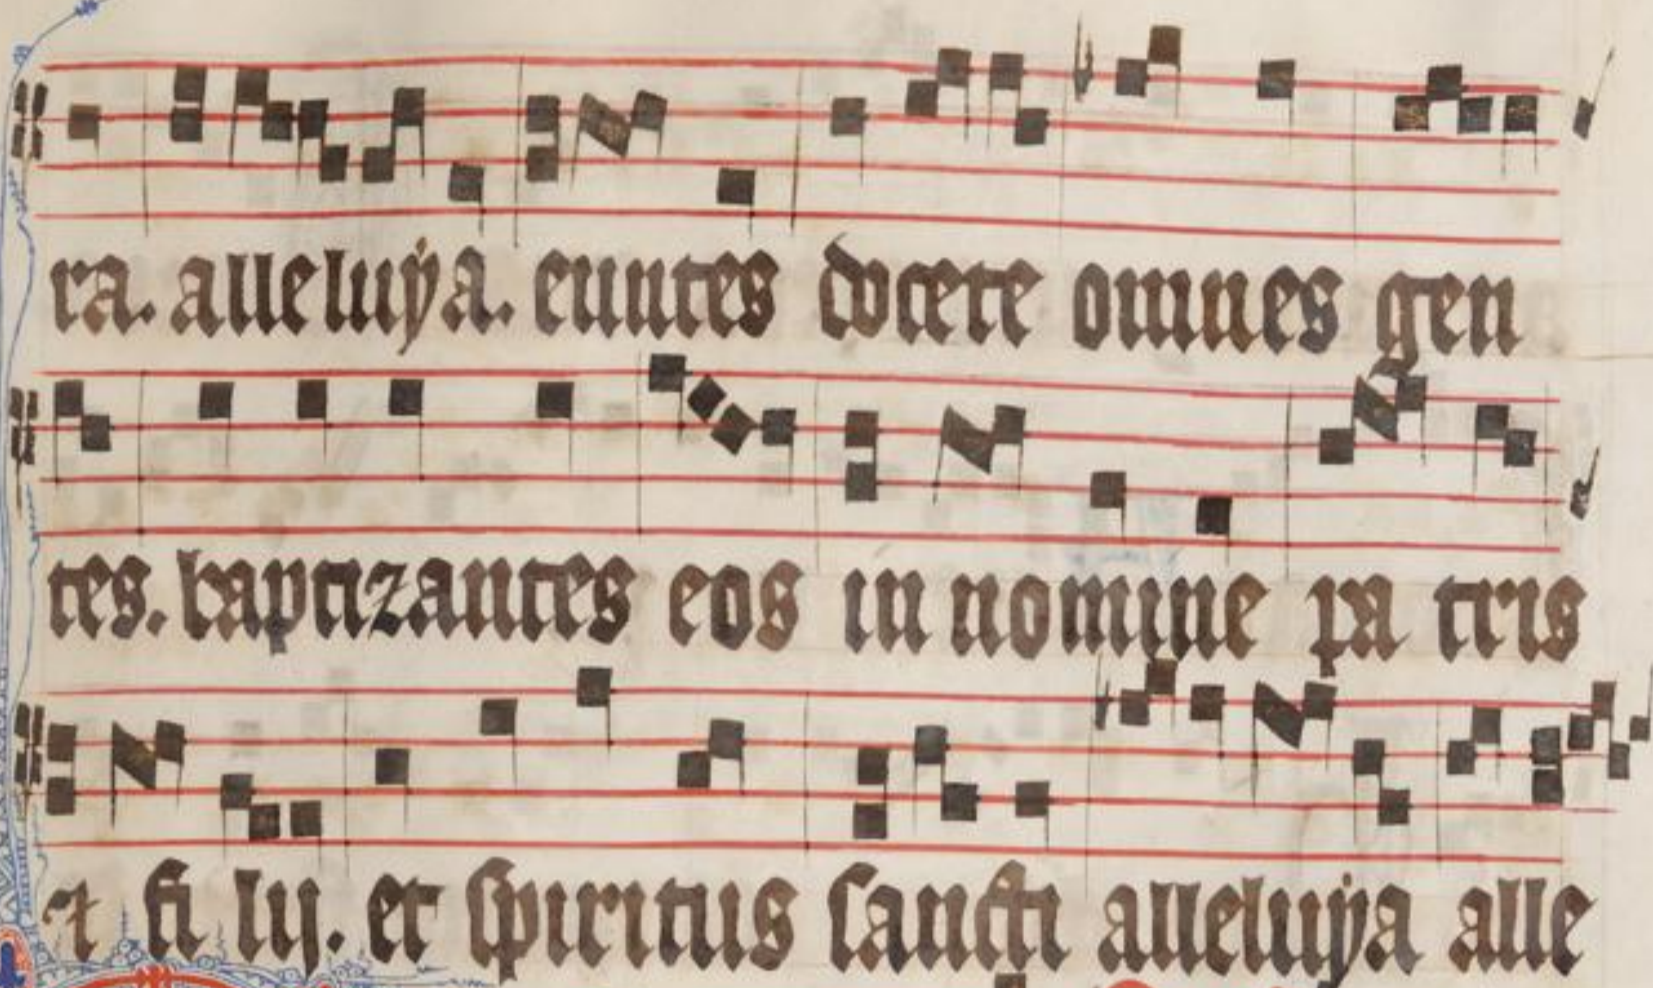 ra. alleluÿa. euntes docete omnes gen
tes. baptizantes eos in nomine pa tris
⁊ fi lij. et spiritus sancti alleluÿa alle